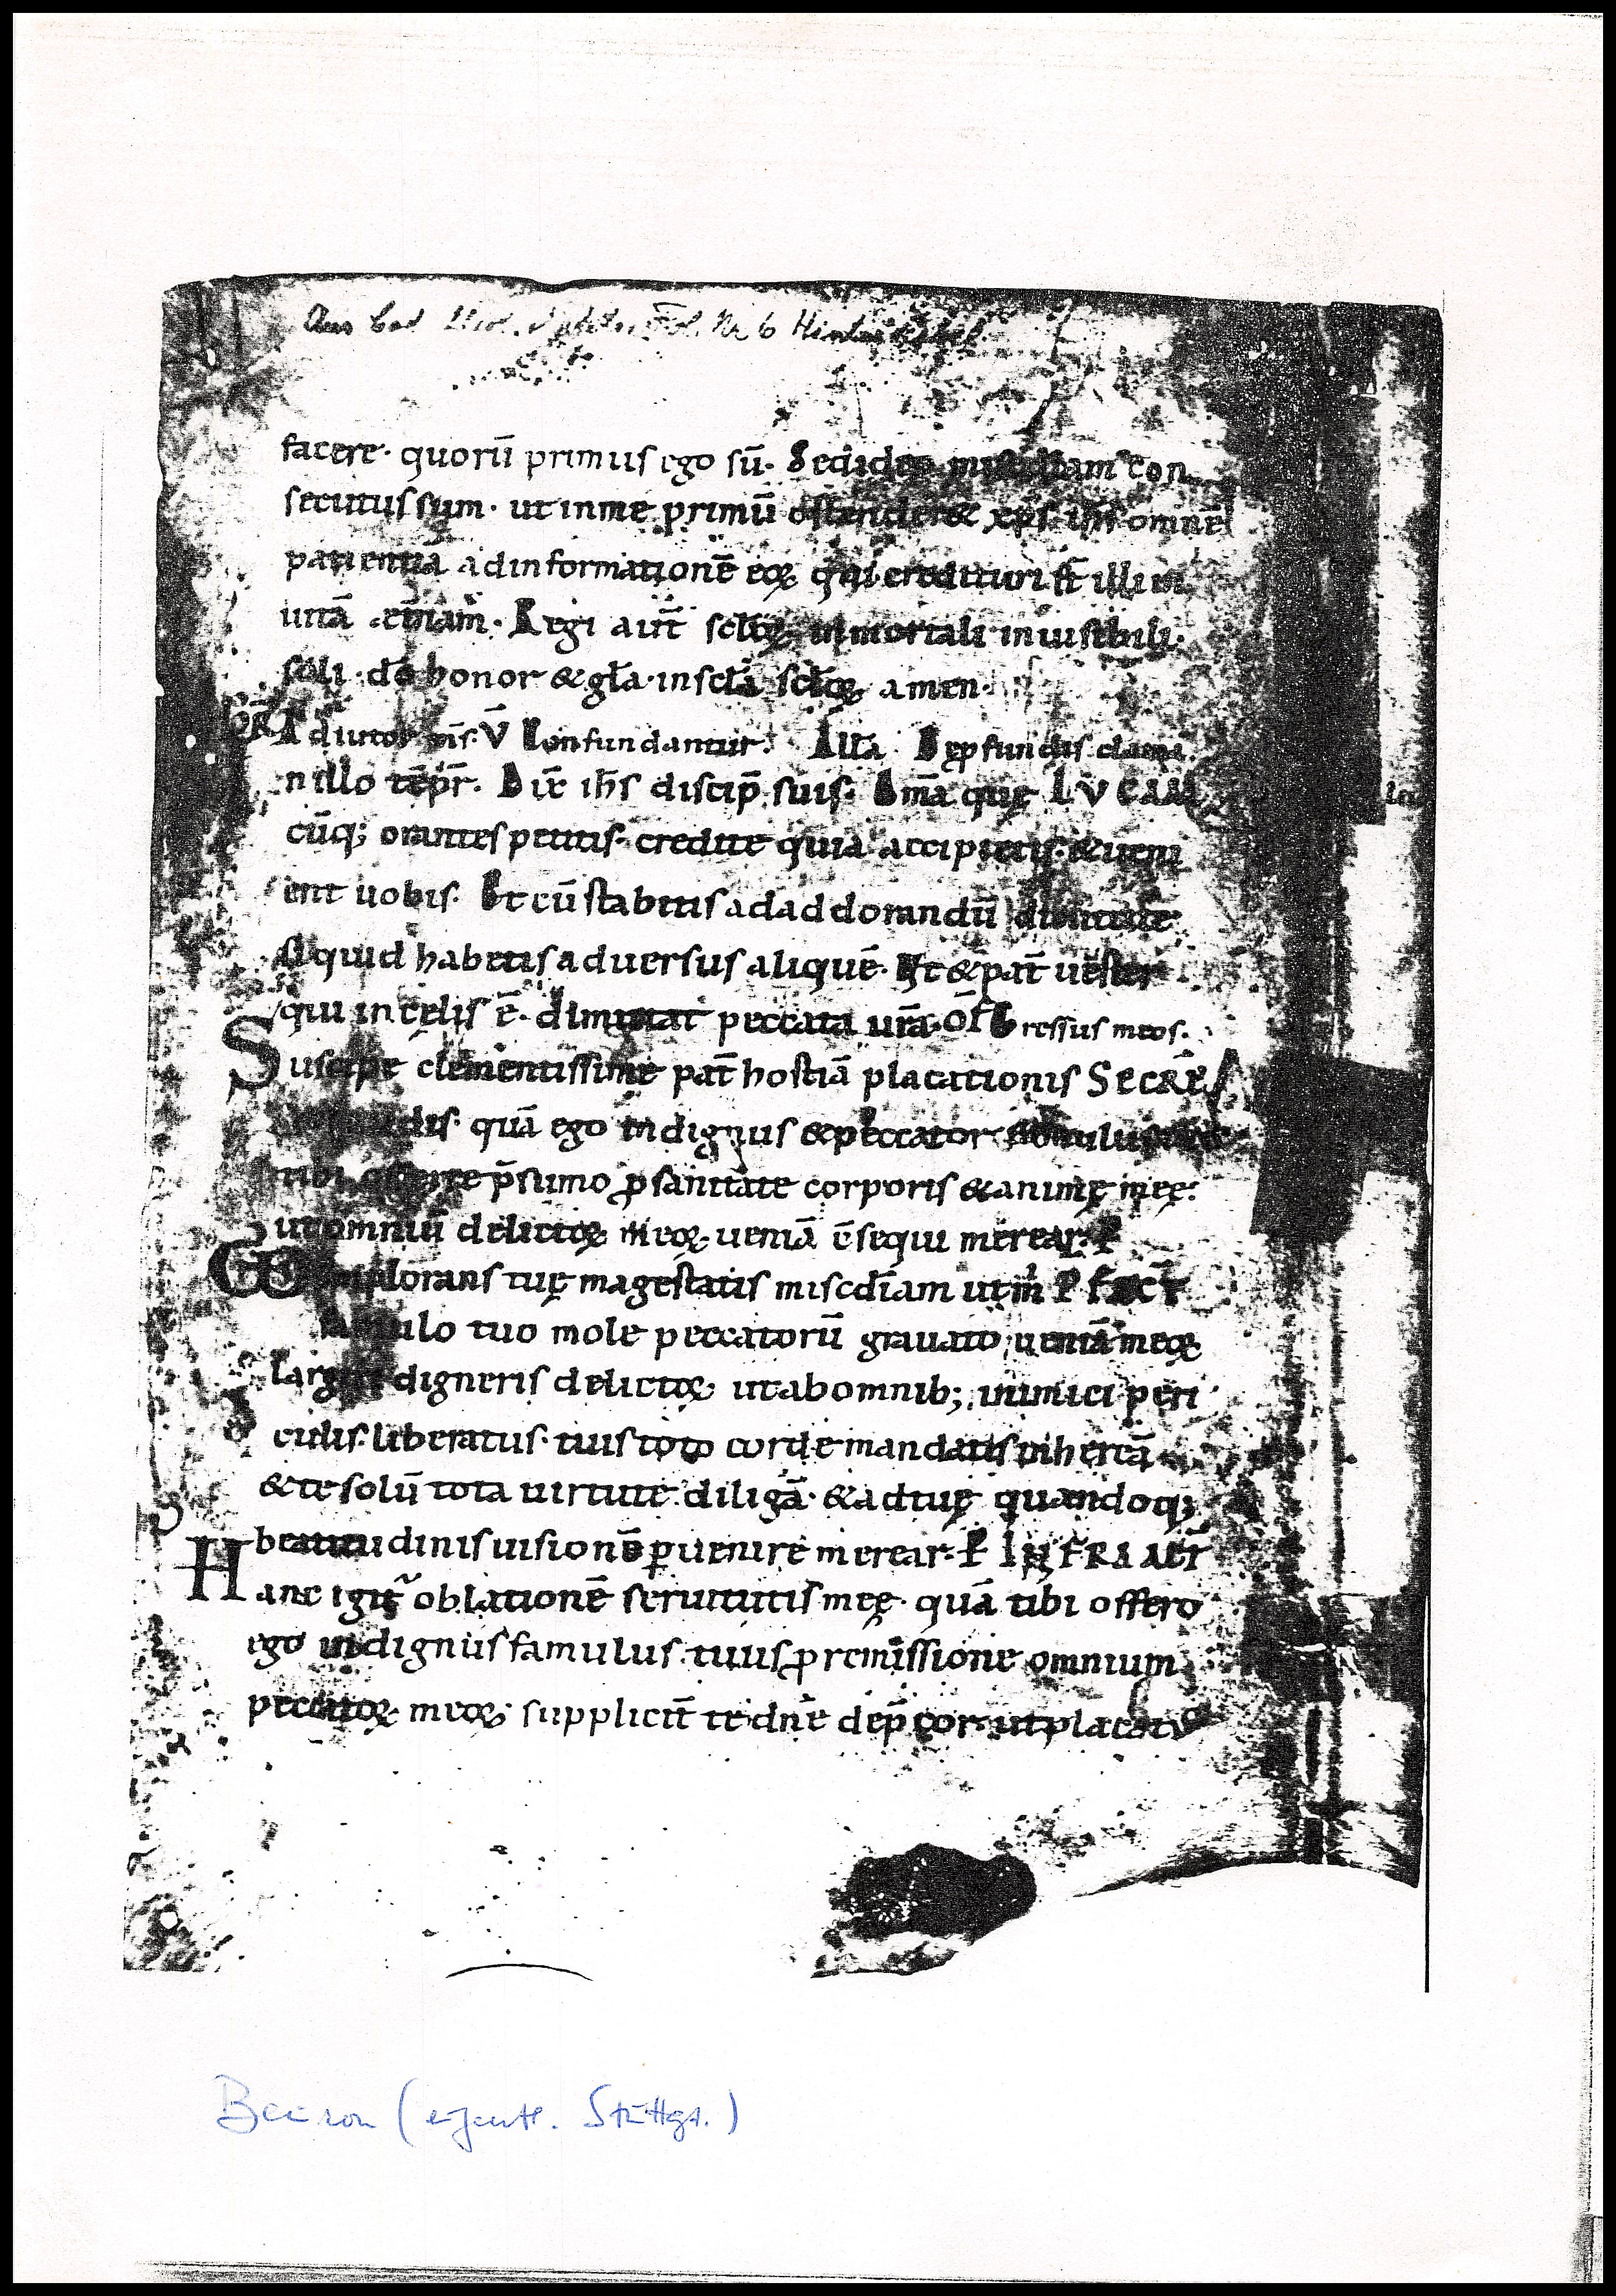 Aus Cod. Nr 6
facere· quorū primus ego sū· Sed ideo con
secutus sum· ut in me primū ostenderet xp̄s ih̄s omnē
patientiā ad informationē eoꝝ qui credituri st̄ illi in
uitā et̄nam· Regi aut̄ sc̄loꝝ inmortali inuisibili·
soli do honor & gl̄a· in sc̄la sc̄loꝝ amen·
GR̄ Adiutor V̄ Confundantur· All̄a De p̄fundis clama
n illo tēpr̄· Dix̄ ih̄s discip̄ suis· Om̄a quę LVCAM
cūq; orantes petitis· credite quia accipietis· & ueni
ent uobis· Et cū stabitis ad addorandū dimittite
si quid habetis aduersus aliquē· Ut & pat̄ uester
qui in cęlis ē· dimittat peccata ur̄a· OF̄ Gressus meos·
Suscipe clementissime pat̄ hostiā placationis SECRĒ
quā ego indignus & peccator famulus
tibi offerre p̄sumo ꝓ sanitate corporis & animę meę·
ut omniū delictoꝝ meoꝝ· ueniā c̄sequi merear· P
implorans tuę magestatis misc̄diam ut m̄ PFĀCT
famulo tuo mole peccatorū grauato ueniā meoꝝ
largiri digneris delictoꝝ· ut ab omnib; inimici peri
culis· liberatus· tuis toto corde mandatis inhereā
& te solū tota uirtute diligā· & ad tuę quandoq;
beatitudinis uisionē ꝑuenire merear· P INFRA ACT̄
Hanc igit̄ oblationē seruitutis meę· quā tibi offero
ego indignus famulus tuus ꝓ remissione omnium
peccatoꝝ meoꝝ· supplicit̄ te dn̄e dep̄cor· ut placatus
Beuron (eigentl. Stuttgt.)